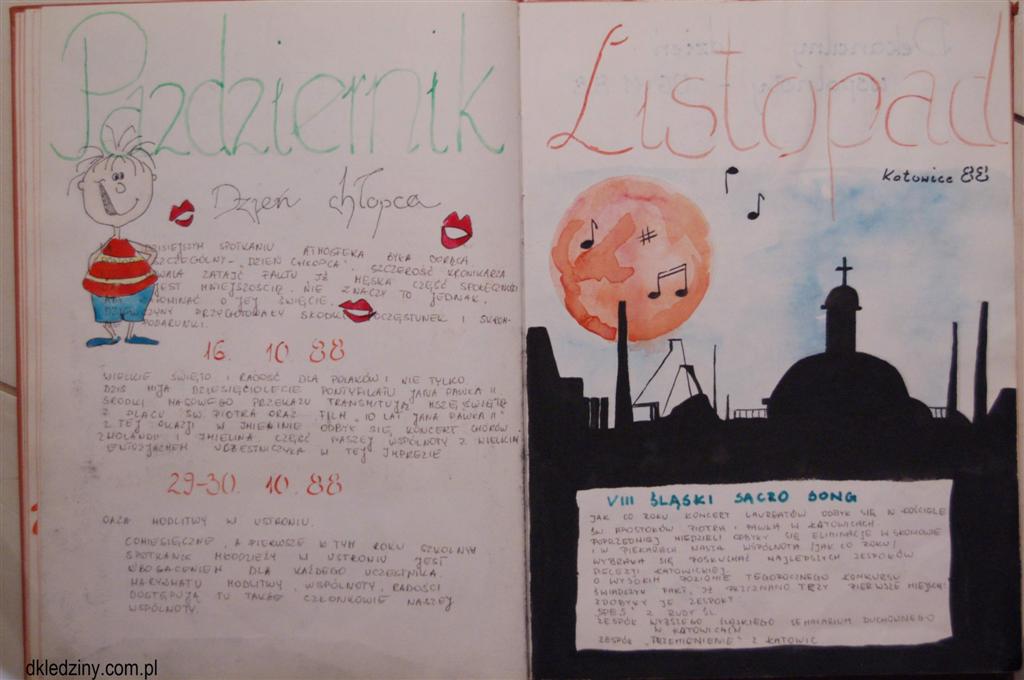 Październik
Dzień chłopca
DZISIEJSZYM SPOTKANIU ATMOSFERA BYŁA GORĄCA
SZCZEGÓLNY - "DZIEŃ CHŁOPCA". SZCZEROŚĆ KRONIKARZA
ZATAJĆ FAKTU, IŻ MĘSKA CZĘŚĆ SPOŁECZNOŚCI
JEST MNIEJSZOŚCIĄ. NIE ZNACZY TO JEDNAK,
ZAPOMINAĆ O JEJ ŚWIĘCIE.
DZIEWCZYNY PRZYGOTOWAŁY SŁODKI POCZĘSTUNEK I SKROM-
NE PODARUNKI.
16. 10 88
WIELKIE ŚWIĘTO I RADOŚĆ DLA POLAKÓW I NIE TYLKO
DZIŚ MIJA DZIESIĘCIOLECIE PONTYFIKATU JANA PAWŁA II
ŚRODKI MASOWEGO PRZEKAZU TRANSMITUJĄ MSZĘ ŚWIĘTĄ
Z PLACU ŚW. PIOTRA ORAZ FILM "10 LAT JANA PAWŁA II"
Z TEJ OKAZJI W IMIELINIE ODBYŁ SIĘ KONCERT CHÓRÓW
Z HOLANDII I IMIELINA. CZĘŚĆ NASZEJ WSPÓLNOTY Z WIELKIM
ENTUZJAZMEM UCZESTNICZYŁA W TEJ IMPREZIE
29-30. 10. 88
OAZA MODLITWY W USTRONIU.
COMIESIĘCZNE, A PIERWSZE W TYM ROKU SZKOLNYM
SPOTKANIE MŁODZIEŻY W USTRONIU JEST
UBOGACENIEM DLA KAŻDEGO UCZESTNIKA.
CHARYZMATU MODLITWY, WSPÓLNOTY, RADOŚCI
DOSTĘPUJĄ TU TAKŻE CZŁONKOWIE NASZEJ
WSPÓLNOTY.
Listopad
Katowice 88
VIII ŚLĄSKI SACRO SONG
JAK CO ROKU KONCERT LAUREATÓW ODBYŁ SIĘ W KOŚCIELE
ŚW. APOSTOŁÓW PIOTRA I PAWŁA W KATOWICACH
POPRZEDNIEJ NIEDZIELI ODBYŁY SIĘ ELIMINACJE W CHORZOWIE
I W PIEKARACH NASZA WSPÓLNOTA /JAK CO ROKU/
WYBRAŁA SIĘ POSŁUCHAĆ NAJLEPSZYCH ZESPOŁÓW
DIECEZJI KATOWICKIEJ.
O WYSOKIM POZIOMIE TEGOROCZNEGO KONKURSU
ŚWIADCZYŁ FAKT, IŻ PRZYZNANO TRZY PIERWSZE MIEJSCA!
ZDOBYŁY JE ZESPOŁY:
"SPEŚ" Z RUDY ŚL.
ZESPÓŁ WYŻSZEGO ŚLĄSKIEGO SEMINARIUM DUCHOWNEGO
W KATOWICACH
ZESPÓŁ "PRZEMIENIENIE" Z KATOWIC
dkledziny.com.pl